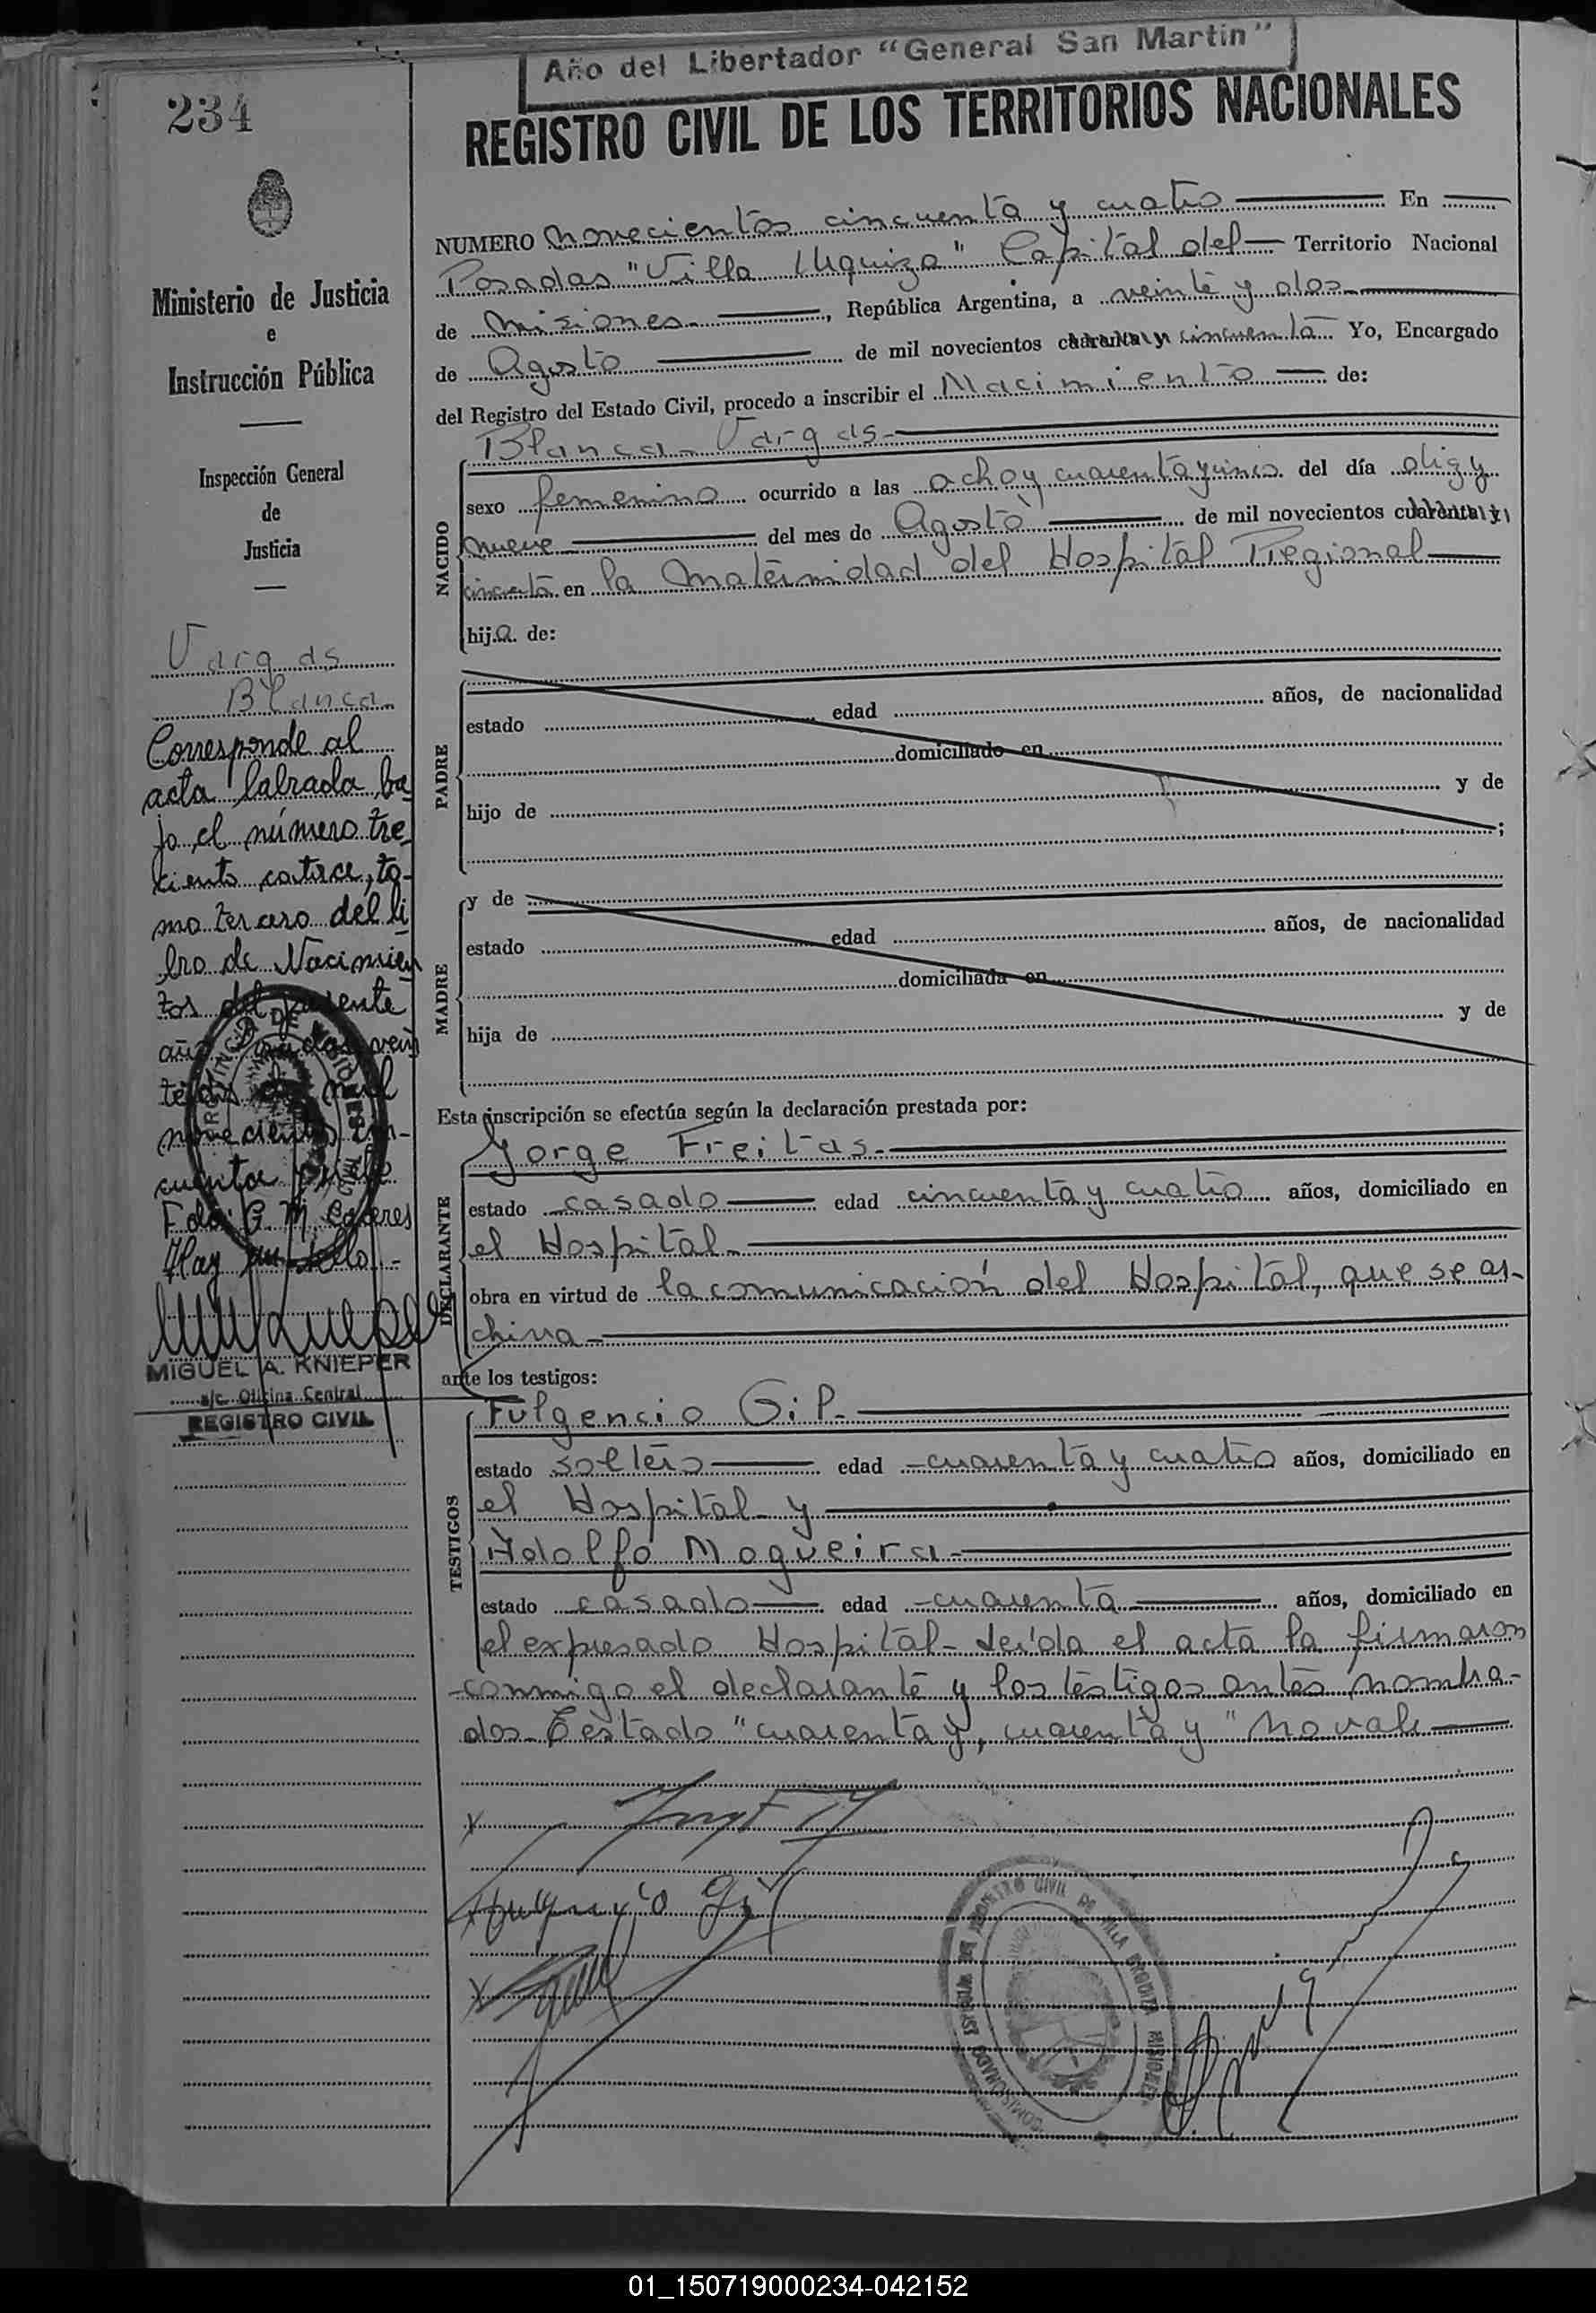 Año del Libertador "General San Martin"
234
REGISTRO CIVIL DE LOS TERRITORIOS NACIONALES
Ministerio de Justicia
e
Instrucción Pública
Inspección General
de
Justicia
Vargas
Blanca
Corresponde al
acta labrada ba
jo el número tre
ciento catorce, to-
mo tercero del li
bro de Nacimien
tos del presente
año
novecientos cin-
cuenta
Fdo: G. M. Caceres
Hay un sello.-
MIGUEL A. KNIEPER
a/c. Oficina Central
REGISTRO CIVIL
NUMERO novecientos cincuenta y cuatro En
Posadas "Villa Urquiza" Capital del Territorio Nacional
de Misiones, República Argentina, a veinte y dos
de Agosto de mil novecientos cuarenta y cincuenta Yo, Encargado
del Registro del Estado Civil, procedo a inscribir el Nacimiento de:
NACIDO
Blanca Vargas-
sexo femenino ocurrido a las ocho y cuarenta y cinco del día diez y
nueve del mes de Agosto de mil novecientos cuarenta y
cincuenta en la Maternidad del Hospital Regional
hija de:
PADRE
estado edad años, de nacionalidad
domiciliado en
hijo de y de
;
MADRE
y de
estado edad años, de nacionalidad
domiciliada en
hija de y de
Esta inscripción se efectúa según la declaración prestada por:
DECLARANTE
Jorge Freitas.-
estado casado edad cincuenta y cuatro años, domiciliado en
el Hospital.-
obra en virtud de la comunicación del Hospital, que se ar-
chiva-
ante los testigos:
TESTIGOS
Fulgencio Gil.-
estado soltero edad cuarenta y cuatro años, domiciliado en
el Hospital y
Adolfo Mogueira.-
estado casado edad cuarenta años, domiciliado en
el expresado Hospital- Leída el acta la firmaron
conmigo el declarante y los testigos antes nombra-
dos- Testado "cuarenta y, cuarenta y" No vale
01_150719000234-042152